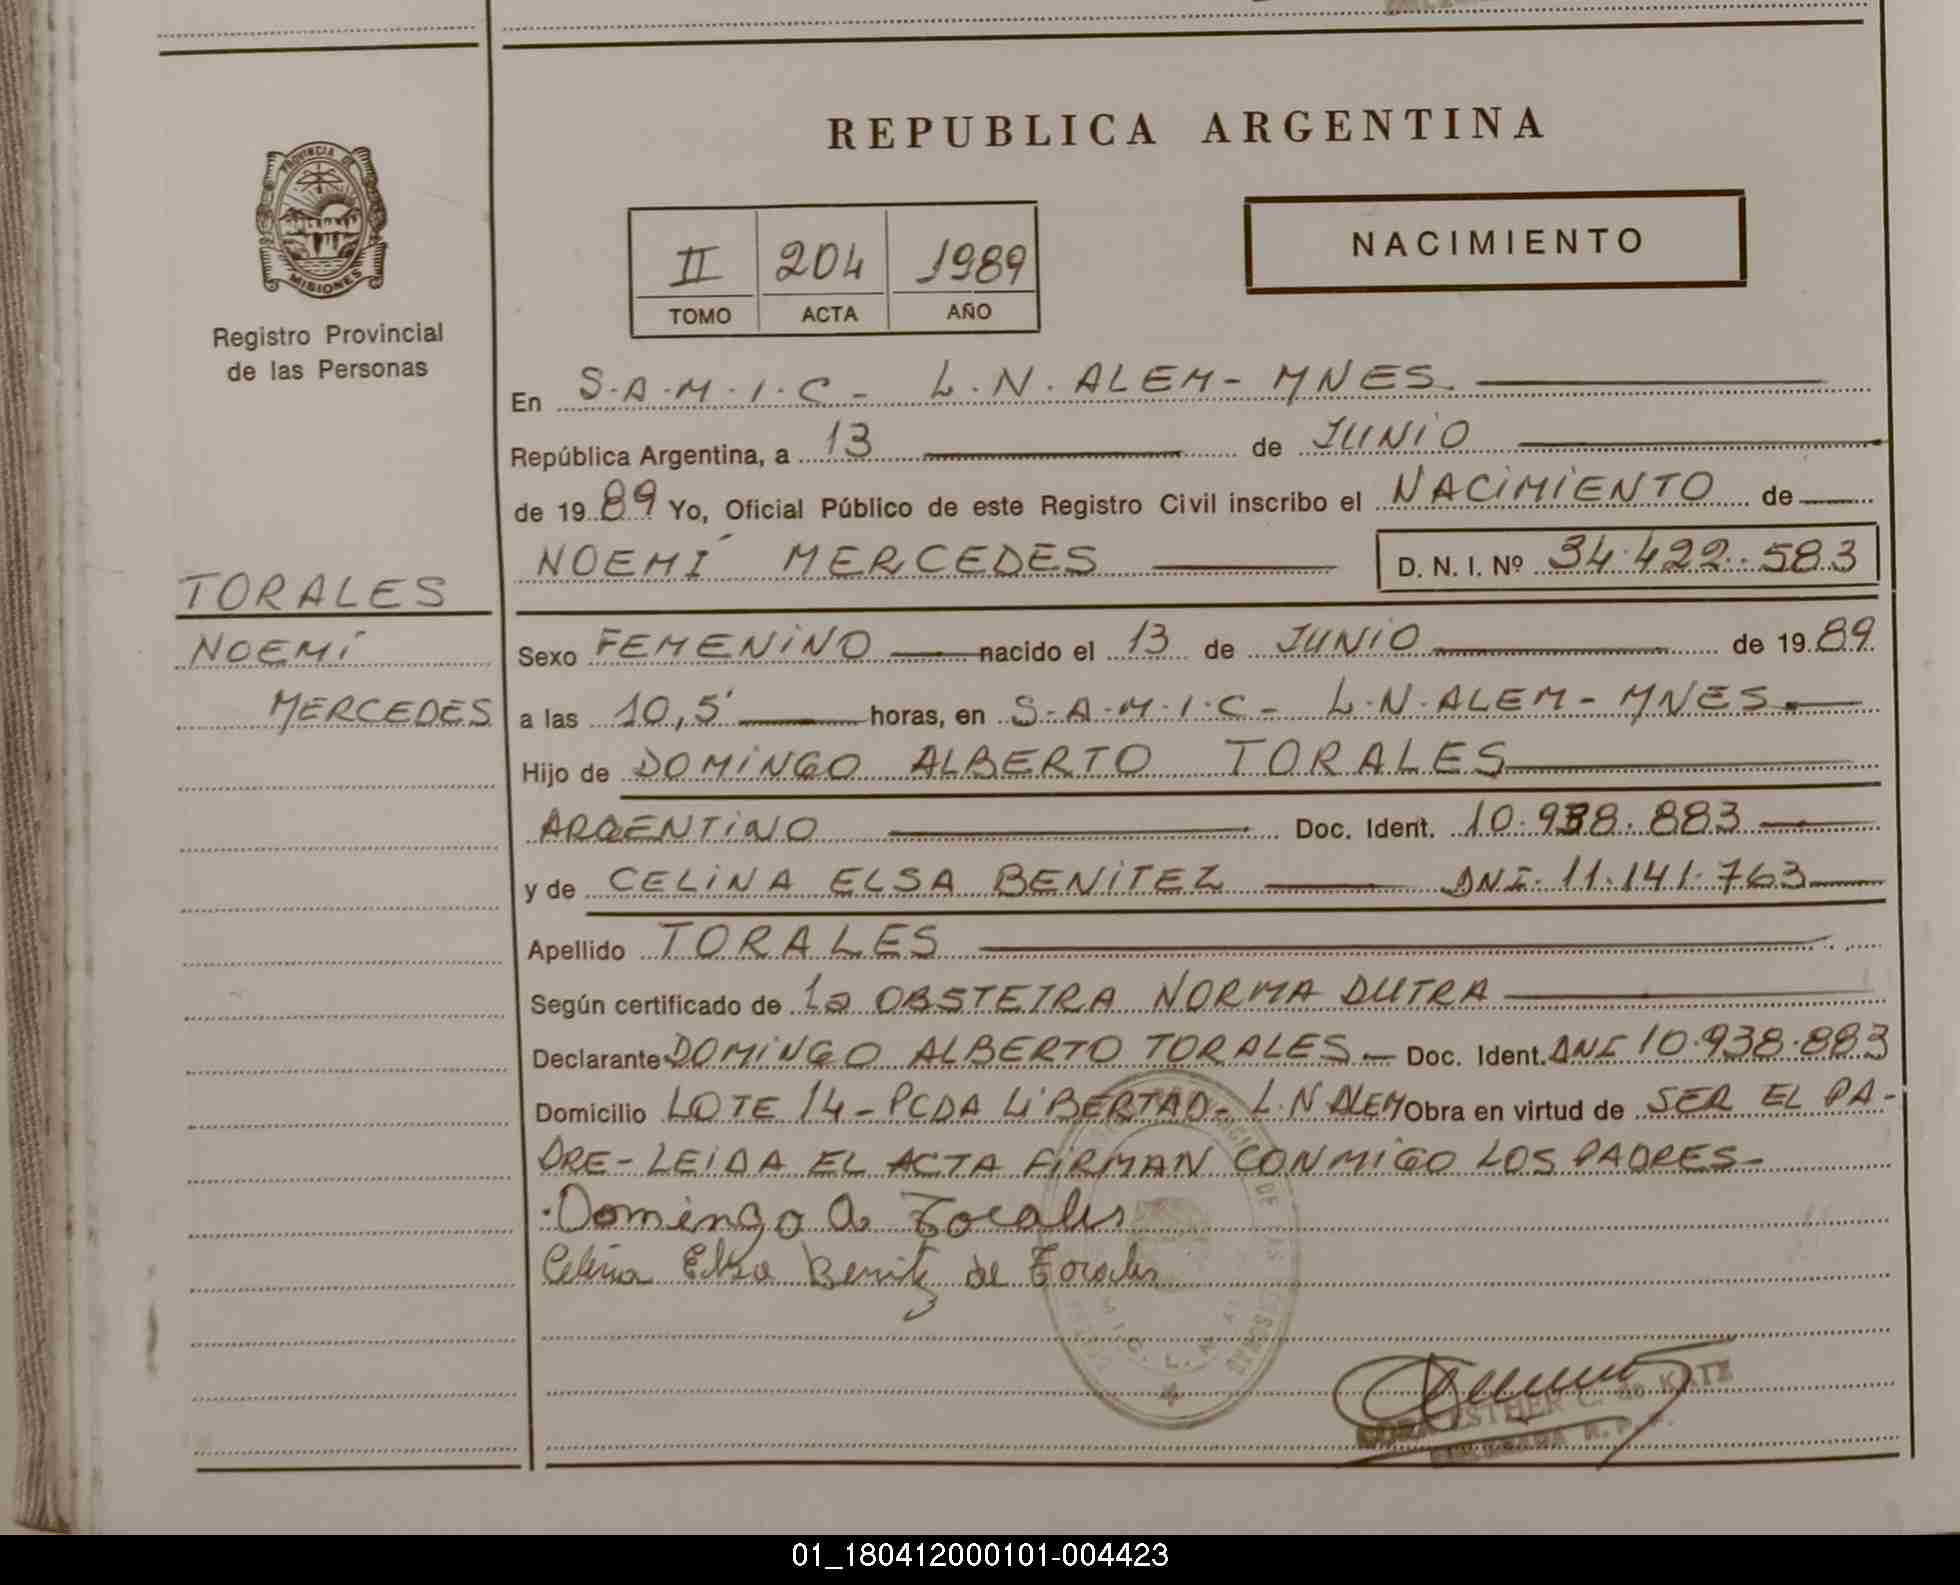 REPUBLICA ARGENTINA
PROVINCIA DE
MISIONES
Registro Provincial
de las Personas
II 204 1989
TOMO ACTA AÑO
NACIMIENTO
En S.A.M.I.C - L.N. ALEM - MNES.
República Argentina, a 13 de JUNIO
de 1989 Yo, Oficial Público de este Registro Civil inscribo el NACIMIENTO de
NOEMÍ MERCEDES D. N. I. Nº 34.422.583
TORALES
NOEMÍ
MERCEDES
Sexo FEMENINO nacido el 13 de JUNIO de 1989.
a las 10,5' horas, en S.A.M.I.C - L.N. ALEM - MNES.
Hijo de DOMINGO ALBERTO TORALES
ARGENTINO Doc. Ident. 10.938.883
y de CELINA ELSA BENITEZ DNI. 11.141.763
Apellido TORALES
Según certificado de la OBSTETRA NORMA DUTRA
Declarante DOMINGO ALBERTO TORALES - Doc. Ident. DNI 10.938.883
Domicilio LOTE 14 - PCDA LIBERTAD - L.N ALEM Obra en virtud de SER EL PA-
DRE - LEIDA EL ACTA FIRMAN CONMIGO LOS PADRES -
Domingo A. Torales
Celina Elsa Benitez de Torales
ESTHER C. de KATZ
R. P. P.
01_180412000101-004423